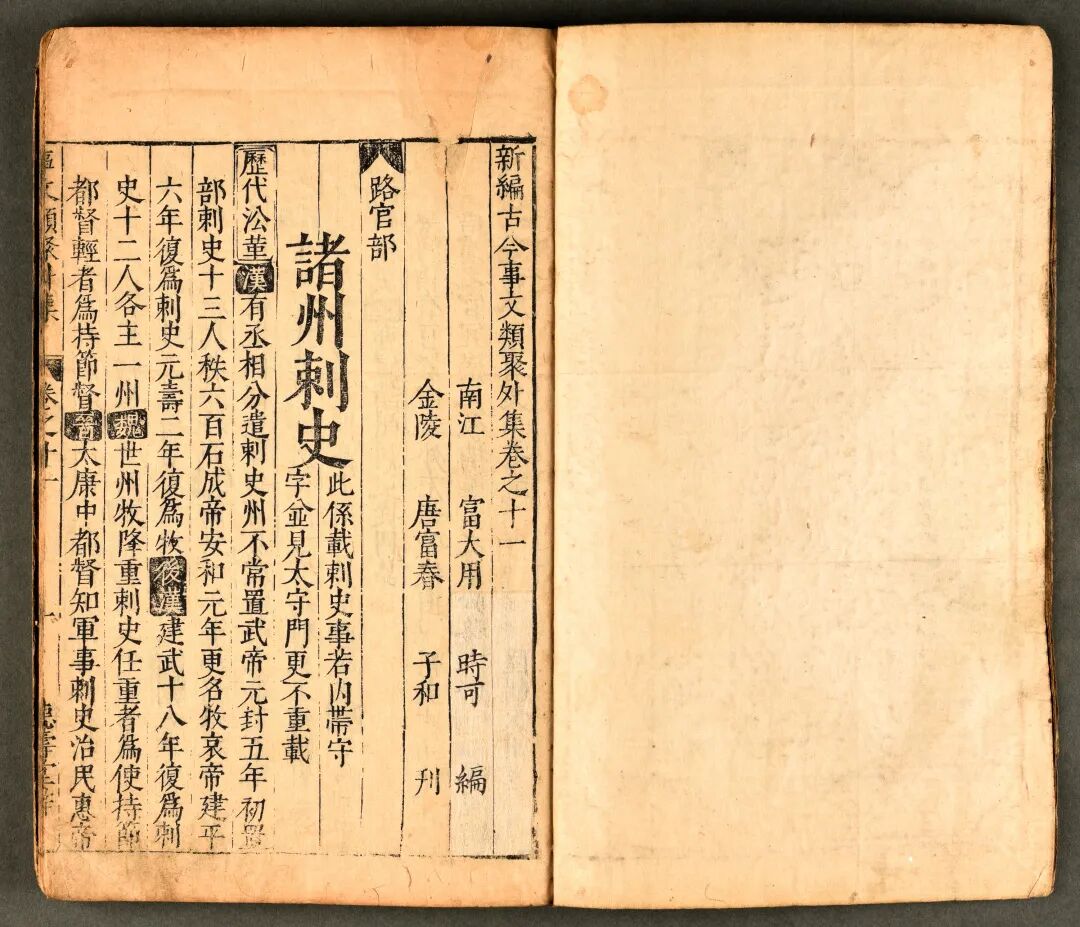 新編古今事文類聚外集卷之十一
南江 富大用 時可 編
金陵 唐富春 子和 刋
路官部
諸州刺史 此係載刺史事若内帶守
字並見太守門更不重載
歷代沿革 漢 有丞相分遣刺史州不常置武帝元封五年初置
部刺史十三人秩六百石成帝安和元年更名牧哀帝建平
六年復爲刺史元壽二年復爲牧 後漢 建武十八年復爲刺
史十二人各主一州 魏 世州牧隆重刺史任重者爲使持節
都督輕者爲持節督 晉 太康中都督知軍事刺史治民惠帝
文類聚外集 卷之十一